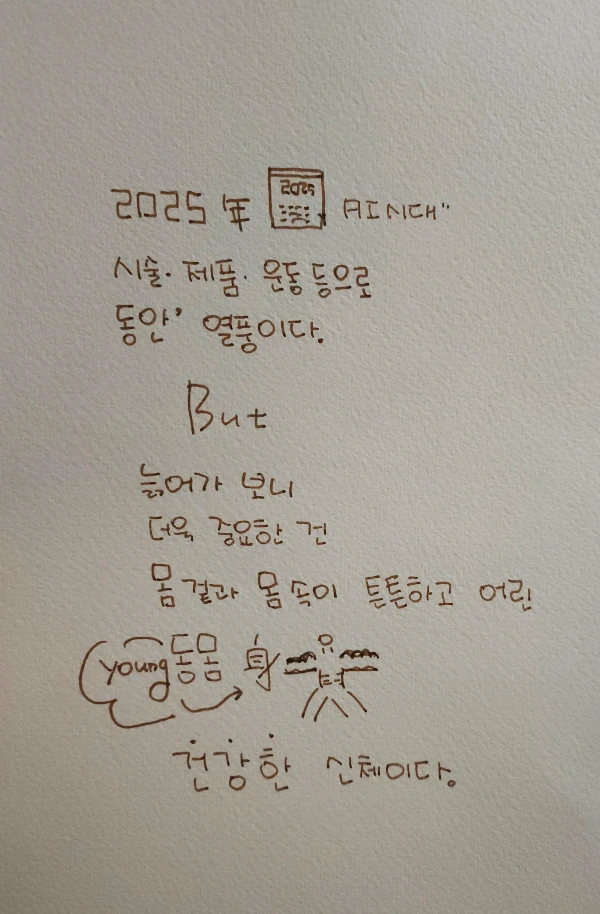 2025 年 2025 AI시대"
시술·제품·운동 등으로
동안' 열풍이다.
But
늙어가 보니
더욱 중요한 건
몸 겉과 몸 속이 튼튼하고 어린
young동몸 身
건강한 신체이다.